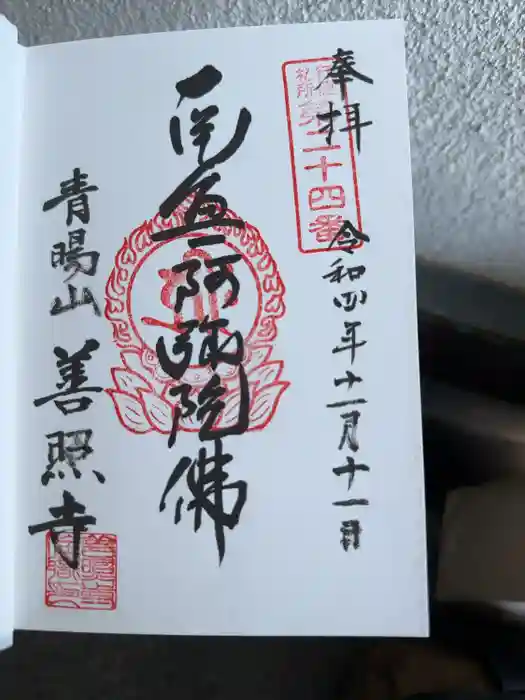 奉拝
第二十四番
札所
令和四年十一月十一日
南無阿弥陀佛
青陽山 善照寺